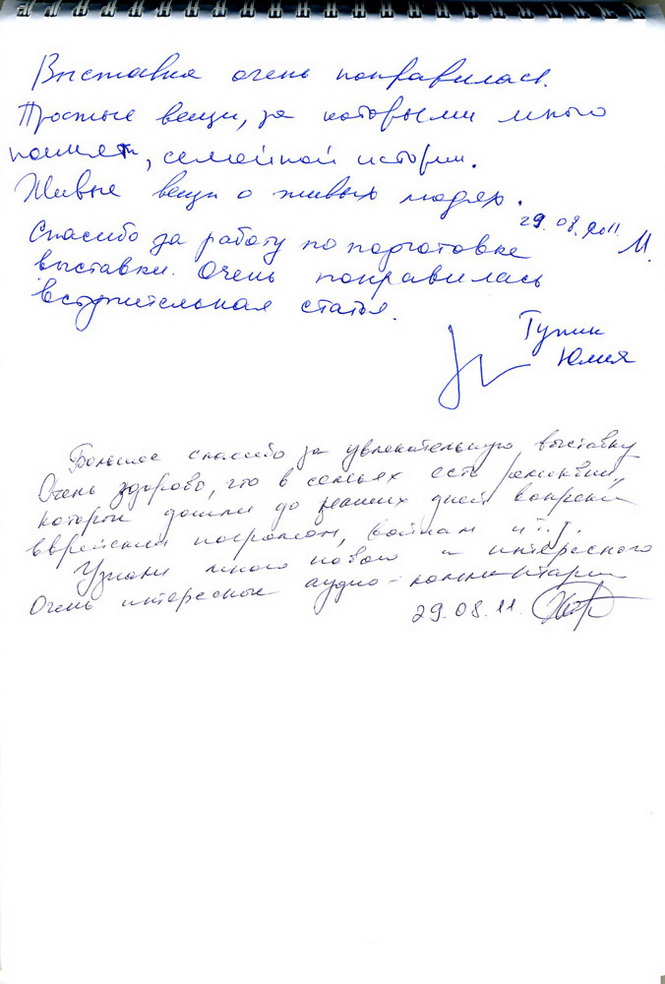 Выставка очень понравилась.
Простые вещи, за которыми много
памяти, семейной истории.
Живые вещи о живых людях.
29.08.2011 М.
Спасибо за работу по подготовке
выставки. Очень понравилась
вступительная статья.
Юлия
Большое спасибо за увлекательную выставку
Очень здорово, что в семьях есть реликвии,
которые дошли до наших дней вопреки
еврейским погромам, войнам и т.д.
Узнали много нового и интересного
Очень интересные аудио-комментарии
29.08.11.